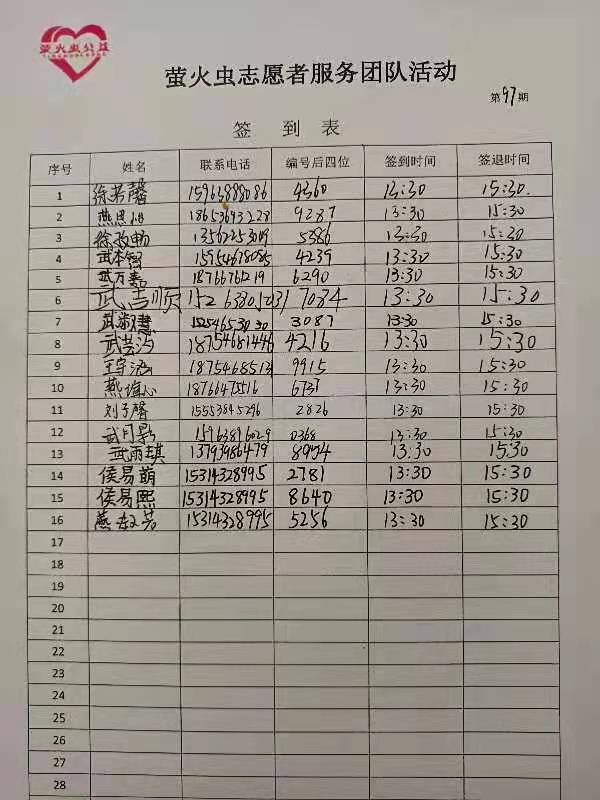 萤火虫公益
萤火虫志愿者服务团队活动
第97期
签到表
序号 姓名 联系电话 编号后四位 签到时间 签退时间
1 徐若馨 15963888086 4360 13:30 15:30
2 燕思 18653693228 9287 13:30 15:30
3 徐 畅 13562253019 5386 13:30 15:30
4 武本 15954678085 4239 13:30 15:30
5 武万嘉 18766761219 6290 13:30 15:30
6 武吉顺 15263805031 7084 13:30 15:30
7 武淑慧 3087 13:30 15:30
8 武芸汐 18754681446 4216 13:30 15:30
9 王宇涵 1875468513 9915 13:30 15:30
10 燕 心 18766475516 6731 13:30 15:30
11 刘子馨 15553845296 2826 13:30 15:30
12 武月影 15963896029 0368 13:30 15:30
13 武雨琪 13793986479 13:30 15:30
14 侯易萌 15314328995 2781 13:30 15:30
15 侯易熙 15314328995 8640 13:30 15:30
16 燕 芳 15314328995 5256 13:30 15:30
17
18
19
20
21
22
23
24
25
26
27
28